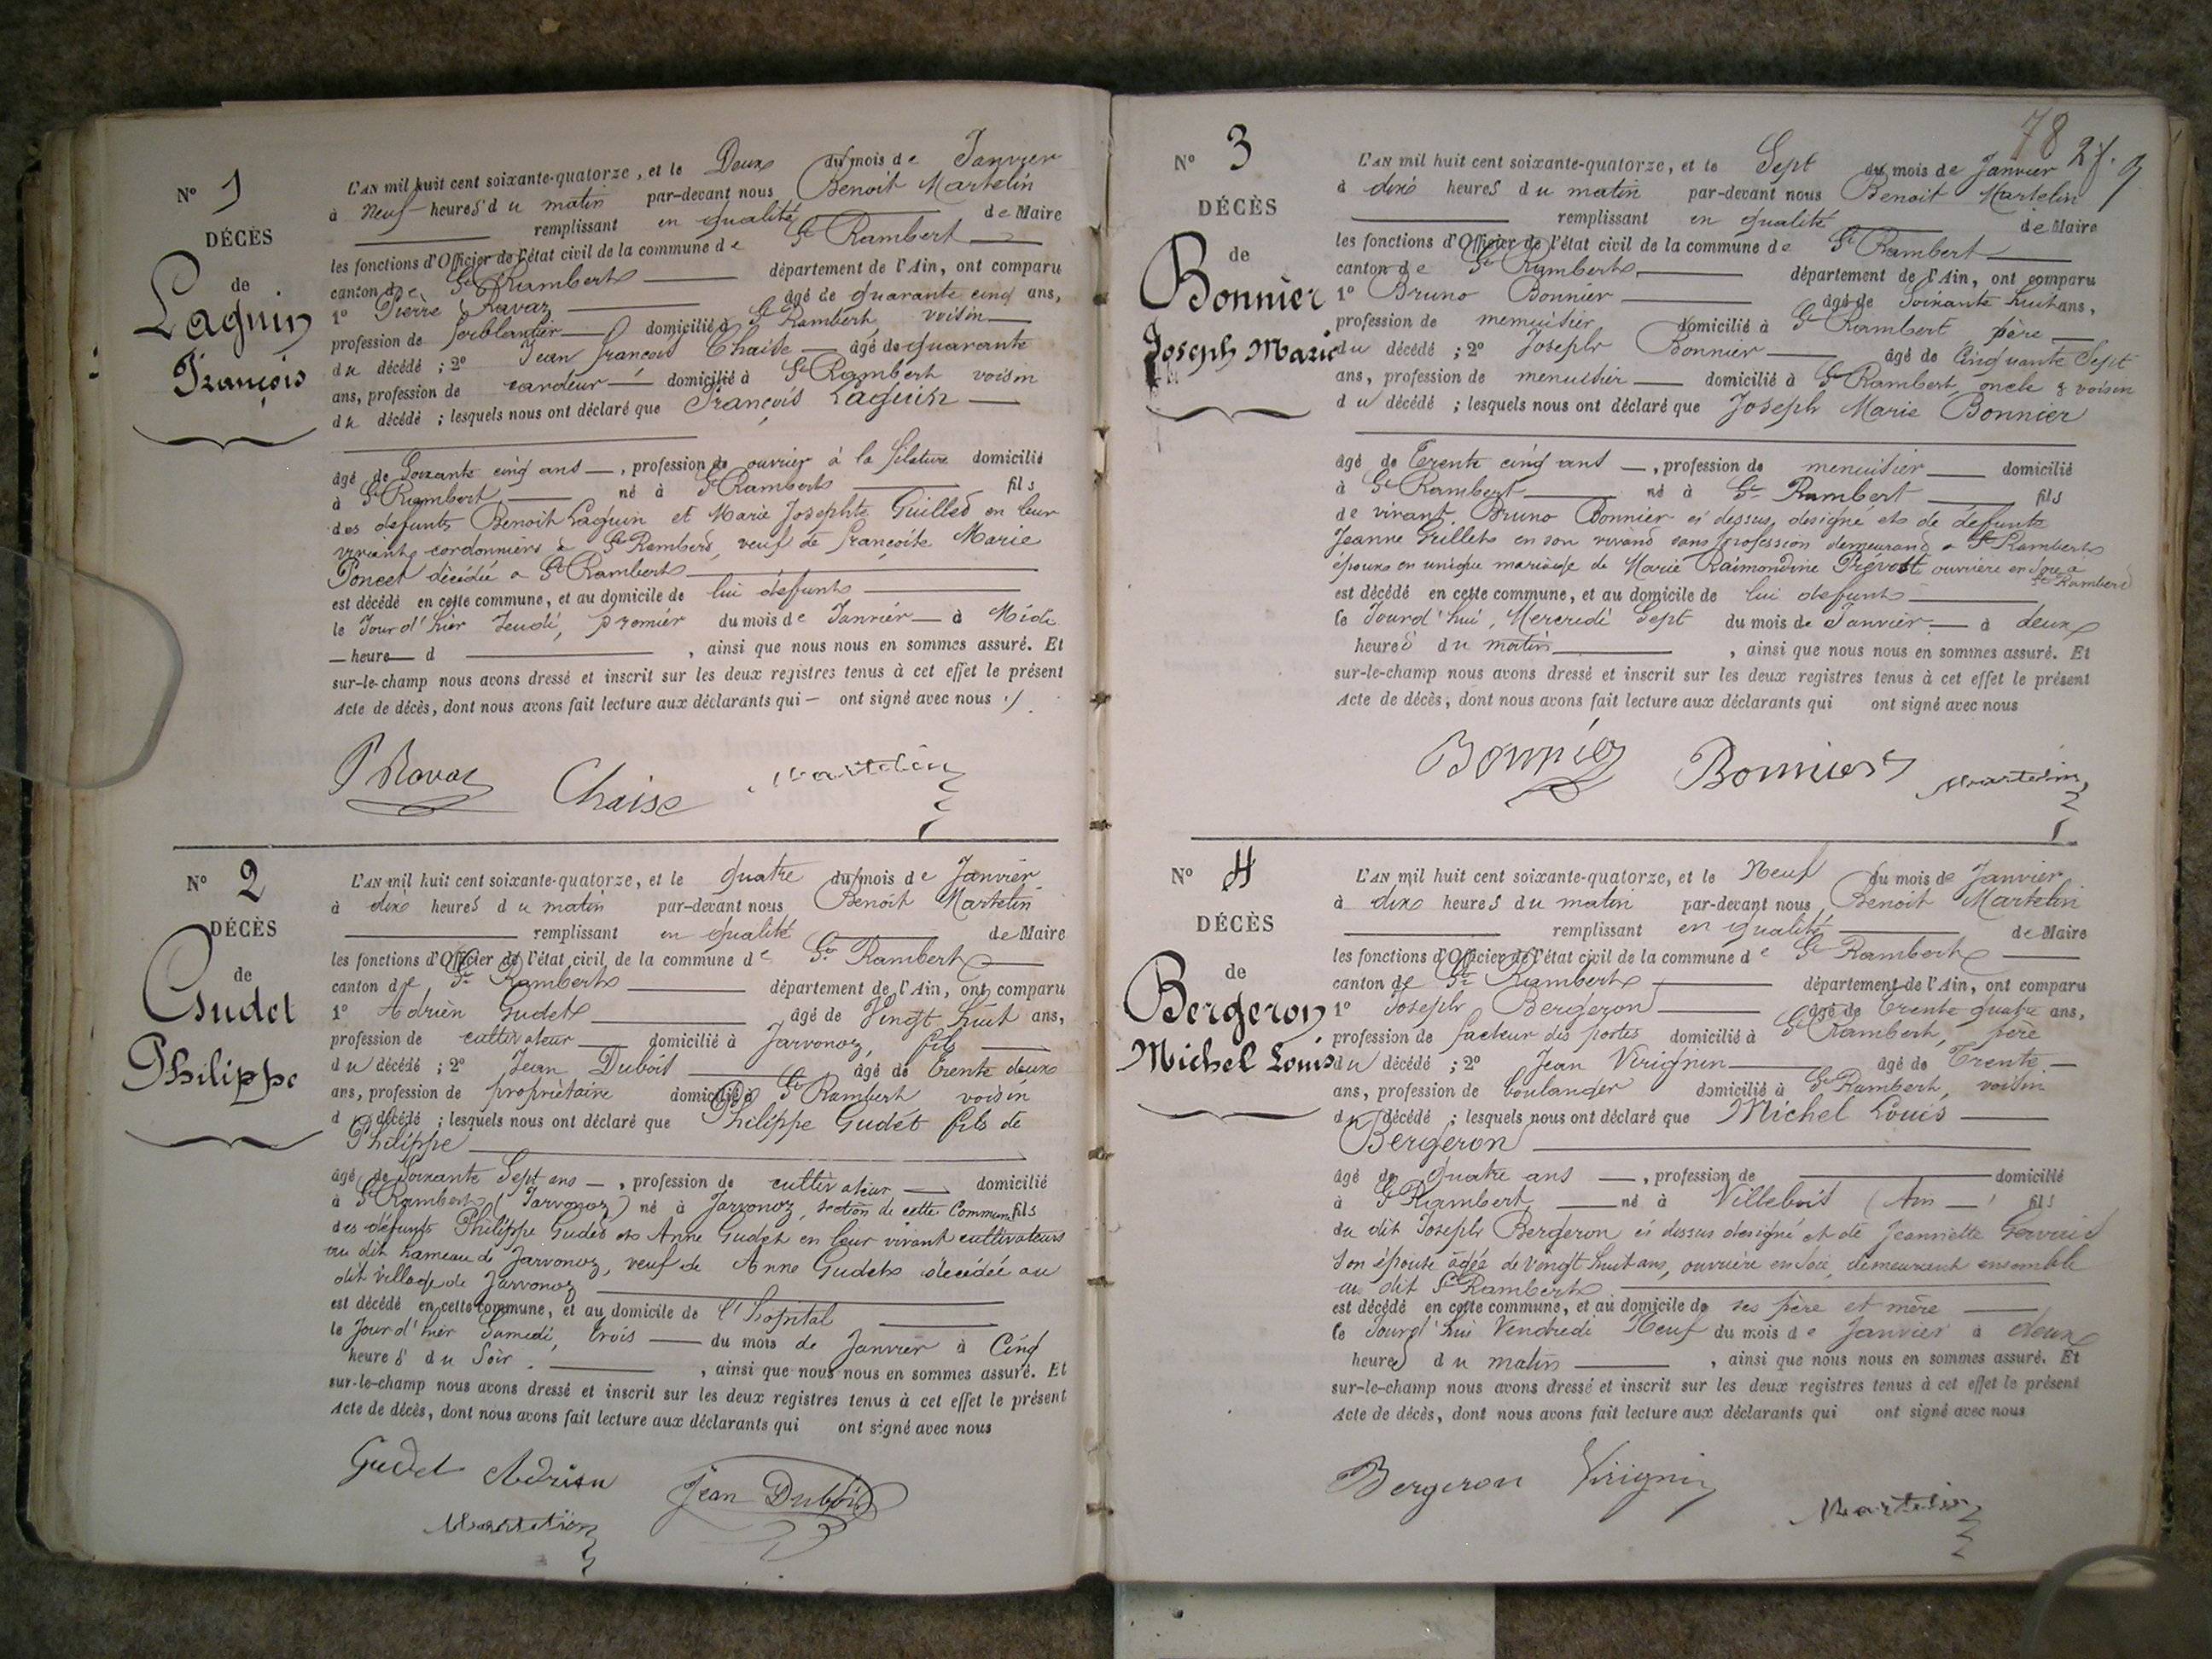 N° 1
DÉCÈS
de
Laguin
François
L'AN mil huit cent soixante-quatorze, et le Deux du mois de Janvier
à Neuf heures du matin par-devant nous Benoit Martelin
remplissant en qualité de Maire
les fonctions d'Officier de l'état civil de la commune de St Rambert
canton de St Rambert département de l'Ain, ont comparu
1° Pierre Ravaz âgé de quarante cinq ans,
profession de ferblantier domicilié à St Rambert voisin
du décédé ; 2° Jean françois Chaise âgé de quarante
ans, profession de cardeur domicilié à St Rambert voisin
du décédé ; lesquels nous ont déclaré que François Laguin
âgé de Soixante cinq ans, profession de ouvrier à la filature domicilié
à St Rambert né à St Rambert fils
des defunts Benoit Laguin et Marie Josephte Guilled en leur
vivants cordonniers à St Rambert, veuf de françoise Marie
Poncet décédée a St Rambert
est décédé en cette commune, et au domicile de lui défunt
le Jour d'hier Jeudi, premier du mois de Janvier à Midi
heure d , ainsi que nous nous en sommes assuré. Et
sur-le-champ nous avons dressé et inscrit sur les deux registres tenus à cet effet le présent
Acte de décès, dont nous avons fait lecture aux déclarants qui ont signé avec nous
P Ravaz Chaise Martelin
N° 2
DÉCÈS
de
Gudet
Philippe
L'AN mil huit cent soixante-quatorze, et le quatre du mois de Janvier
à dix heures du matin par-devant nous Benoit Martelin
remplissant en qualité de Maire
les fonctions d'Officier de l'état civil de la commune de St Rambert
canton de St Rambert département de l'Ain, ont comparu
1° Adrien Gudet âgé de Vingt huit ans,
profession de cultivateur domicilié à Javornoz, fils
du décédé ; 2° Jean Dubois âgé de trente deux
ans, profession de propriétaire domicilié à St Rambert voisin
d décédé ; lesquels nous ont déclaré que Philippe Gudet fils de
Philippe
âgé de Soixante Sept ans, profession de cultivateur domicilié
à St Rambert (Javornoz) né à Javornoz, section de cette Commune fils
des défunts Philippe Gudet et Anne Gudet en leur vivant cultivateurs
au dit hameau de Javornoz, veuf de Anne Gudet décédée au
dit village de Javornoz
est décédé en cette commune, et au domicile de l'hopital
le Jour d'hier Samedi, trois du mois de Janvier à Cinq
heures du Soir , ainsi que nous nous en sommes assuré. Et
sur-le-champ nous avons dressé et inscrit sur les deux registres tenus à cet effet le présent
Acte de décès, dont nous avons fait lecture aux déclarants qui ont signé avec nous
Gudet Adrien Jean Dubois
Martelin
78
N° 3
DÉCÈS
de
Bonnier
Joseph Marie
L'AN mil huit cent soixante-quatorze, et le Sept du mois de Janvier
à dix heures du matin par-devant nous Benoit Martelin
remplissant en qualité de Maire
les fonctions d'Officier de l'état civil de la commune de St Rambert
canton de St Rambert département de l'Ain, ont comparu
1° Bruno Bonnier âgé de Soixante huit ans,
profession de menuisier domicilié à St Rambert père
du décédé ; 2° Joseph Bonnier âgé de Cinquante Sept
ans, profession de menuisier domicilié à St Rambert, oncle & voisin
du décédé ; lesquels nous ont déclaré que Joseph Marie Bonnier
âgé de Trente cinq ans, profession de menuisier domicilié
à St Rambert né à St Rambert fils
de vivant Bruno Bonnier ci dessus désigné et de defunte
Jeanne Grillet en son vivand sans profession demeurand a St Rambert
époux en unique mariage de Marie Raimondine Prévost ouvrière en Soie a
St Rambert
est décédé en cette commune, et au domicile de lui defunt
le Jourd'hui, Mercredi Sept du mois de Janvier à deux
heures du matin , ainsi que nous nous en sommes assuré. Et
sur-le-champ nous avons dressé et inscrit sur les deux registres tenus à cet effet le présent
Acte de décès, dont nous avons fait lecture aux déclarants qui ont signé avec nous
Bonnier Bonnier Martelin
N° 4
DÉCÈS
de
Bergeron
Michel Louis
L'AN mil huit cent soixante-quatorze, et le Neuf du mois de Janvier
à dix heures du matin par-devant nous Benoit Martelin
remplissant en qualité de Maire
les fonctions d'Officier de l'état civil de la commune de St Rambert
canton de St Rambert département de l'Ain, ont comparu
1° Joseph Bergeron âgé de trente quatre ans,
profession de facteur des postes domicilié à St Rambert, père
du décédé ; 2° Jean Virignin âgé de Trente
ans, profession de boulanger domicilié à St Rambert, voisin
du décédé ; lesquels nous ont déclaré que Michel Louis
Bergeron
âgé de quatre ans, profession de domicilié
à St Rambert né à Villebois (Ain) fils
du dit Joseph Bergeron ci dessus designé et de Jeannette
son épouse âgée de vingt huit ans, ouvrière en soie, demeurant ensemble
au dit St Rambert
est décédé en cette commune, et au domicile de ses père et mère
le Jourd'hui Vendredi Neuf du mois de Janvier à deux
heures du matin , ainsi que nous nous en sommes assuré. Et
sur-le-champ nous avons dressé et inscrit sur les deux registres tenus à cet effet le présent
Acte de décès, dont nous avons fait lecture aux déclarants qui ont signé avec nous
Bergeron Virignin
Martelin